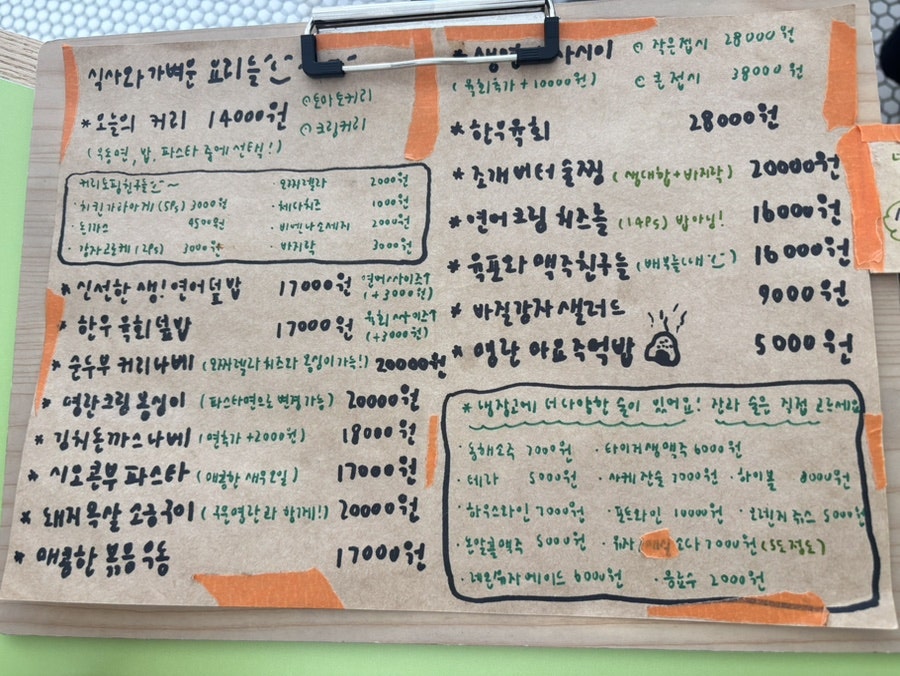 식사와 가벼운 요리들
*오늘의 커리 14000원
토마토커리
크림커리
(우동면, 밥, 파스타 중에 선택!)
커리토핑친구들
·치킨가라아게 (5ps) 3000원
·돈까스 4500원
·감자고로케 (2ps) 3000원
·모짜렐라 2000원
·체다치즈 1000원
·비엔나소세지 2000원
·바지락 3000원
*신선한 생!연어덮밥 17000원
연어사이즈↑
(+3000원)
*한우 육회덮밥 17000원
육회사이즈↑
(+3000원)
*순두부 커리나베 (모짜렐라 치즈와 옹심이가득!) 20000원
*명란크림 옹심이 (파스타면으로 변경가능) 20000원
*김치돈까스나베 (면추가 +2000원) 18000원
*시오콘부 파스타 (매콤한 새우오일) 17000원
*돼지목살 소금구이 (구운명란과 함께!) 20000원
*매콤한 볶음우동 17000원
*생연 사시미
작은접시 28000원
(육회추가 +10000원)
큰접시 38000원
*한우육회 28000원
*조개버터술찜 (생대합+바지락) 20000원
*연어크림 치즈롤 (14ps) 밥아님! 16000원
*육포와 맥주친구들 (배부를때) 16000원
*바질감자샐러드 9000원
*명란 마요주먹밥 5000원
*냉장고에 더 다양한 술이 있어요! 잔과 술은 직접 고르세요
·독해소주 7000원
·타이거생맥주 6000원
·테라 5000원
·사케잔술 7000원
·하이볼 8000원
·하우스와인 7000원
·포트와인 10000원
·오렌지주스 5000원
·논알콜맥주 5000원
·유자 소다 7000원 (5도정도)
·레몬유자에이드 6000원
·음료수 2000원